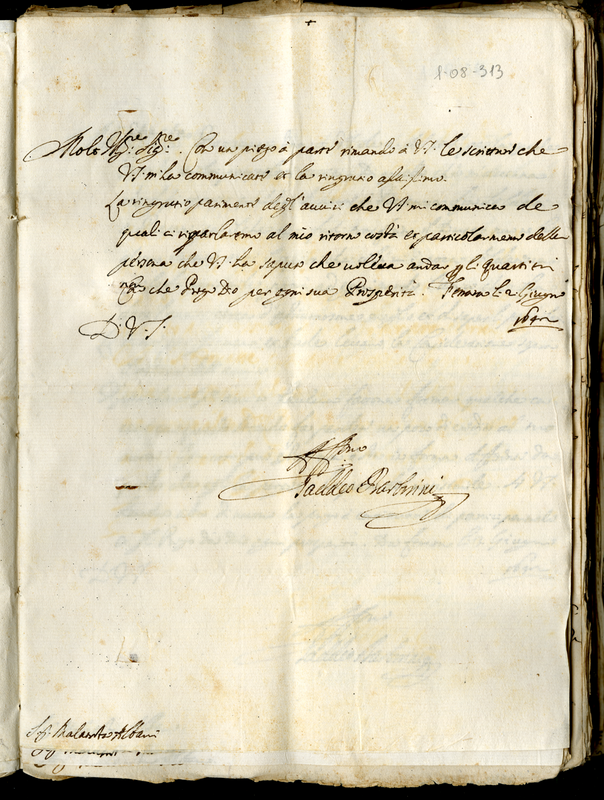 1-08-313
Molto Ill.re Sig.re. Con un piego à parte rimando à V.S. le scritture che
V.S. mi ha communicate et la ringratio assaissimo.
La ringratio parimente degl'auuisi che V.S. mi communica de
quali ci riparlaremo al mio ritorno costà et particolarmente della
persona che V.S. ha saputo che uoleua andar per li quartieri
Con che Prego Dio per ogni sua Prosperità. Li 2 Giugno
1642
D. V. S.
Aff.mo
Taddeo Barberini
Sig.r Malatesta Albani